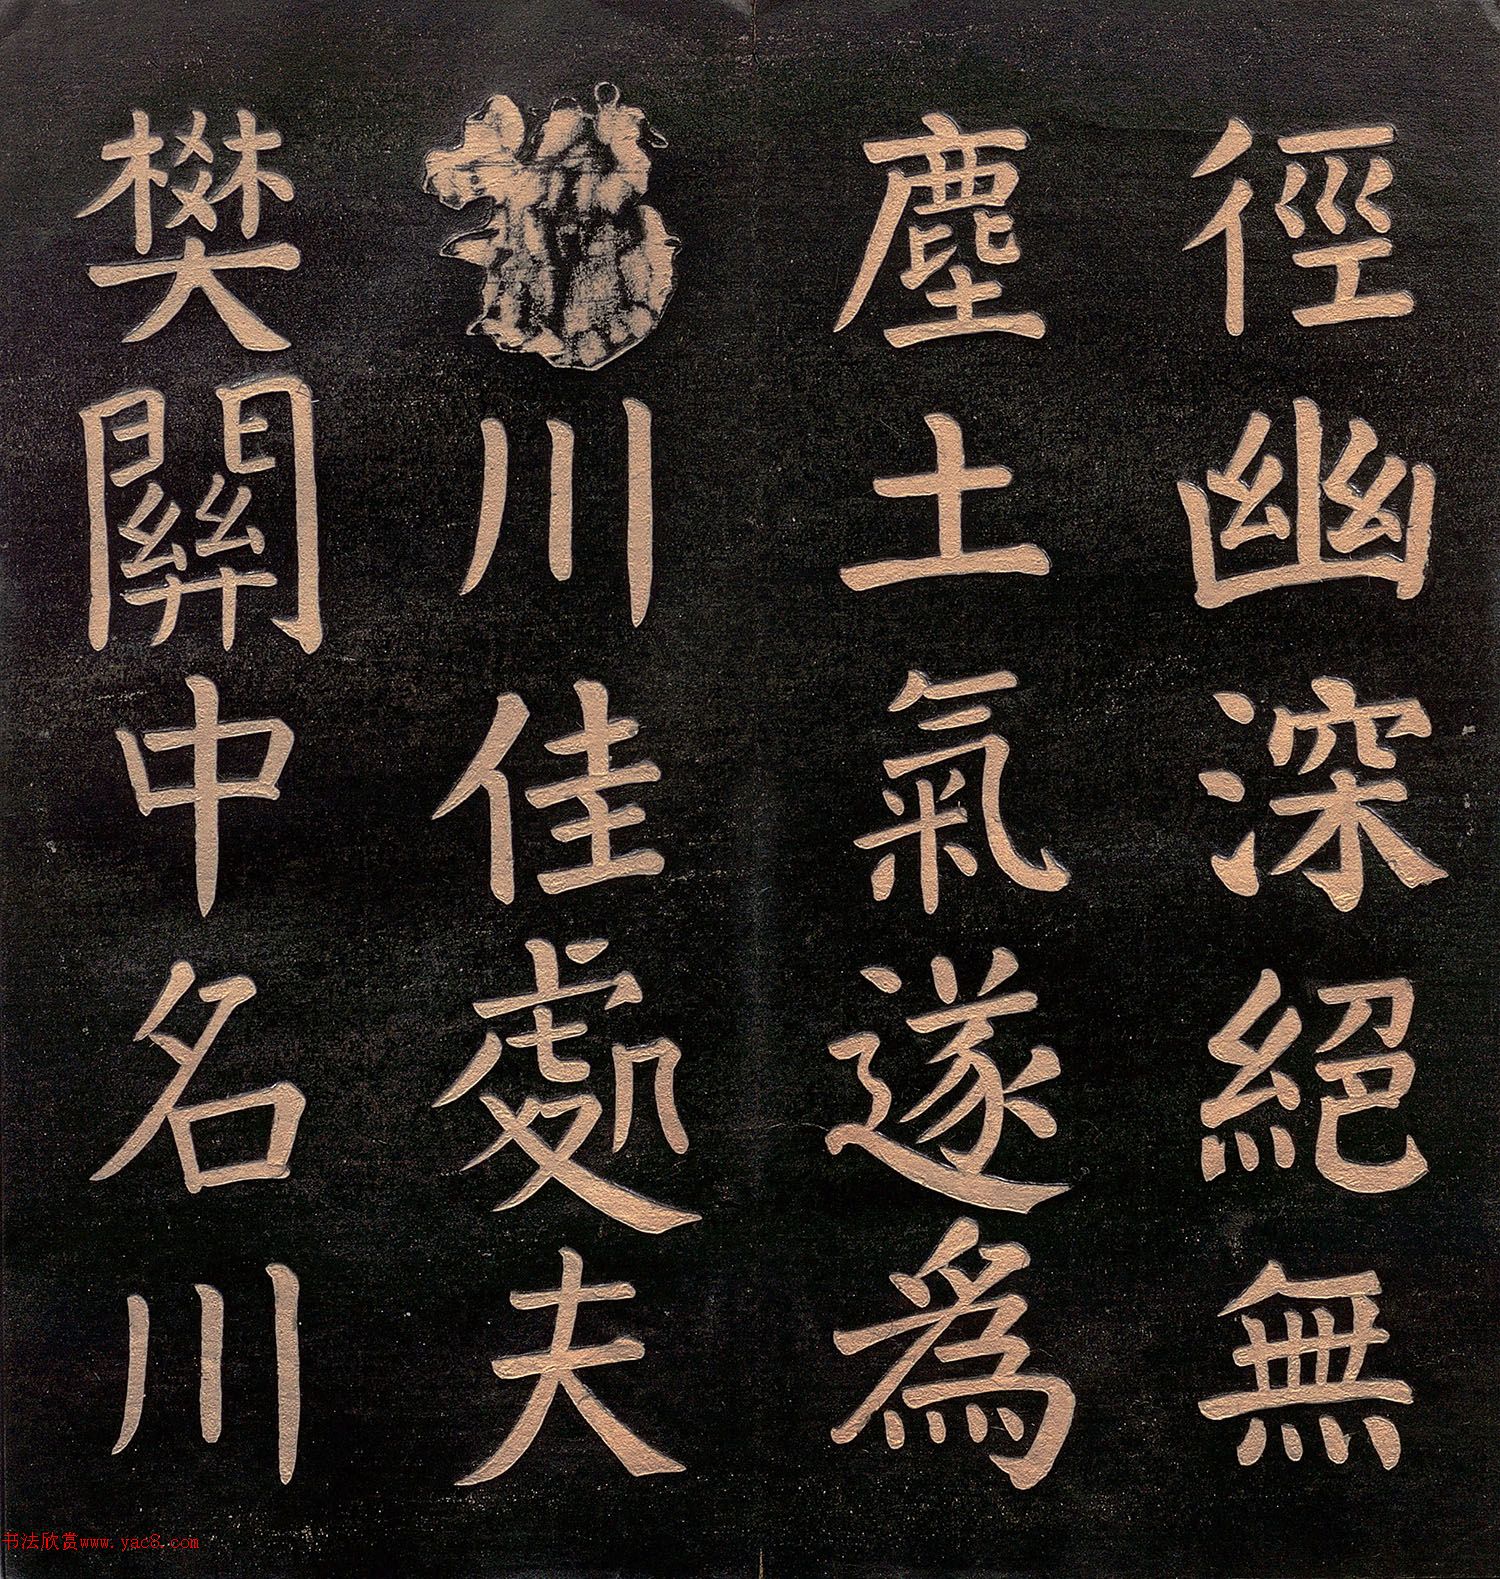 徑幽深絕無
塵土氣遂為
川佳處夫
樊關中名川
书法欣赏www.yac8.com